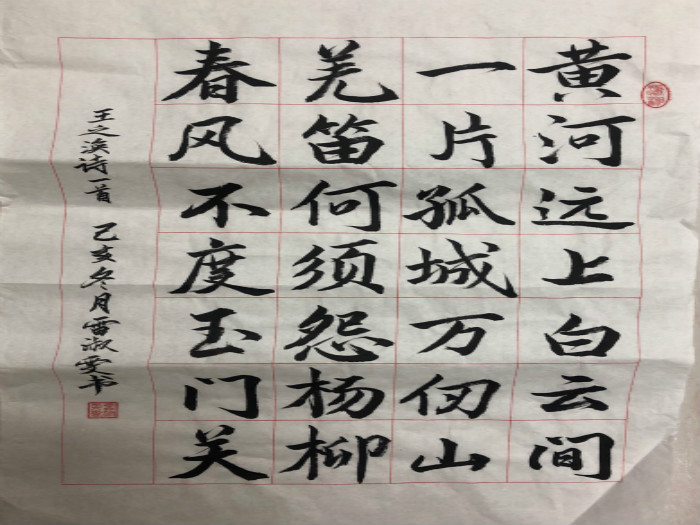 黄河远上白云间
一片孤城万仞山
羌笛何须怨杨柳
春风不度玉门关
王之涣诗一首 己亥冬月雷淑雯书